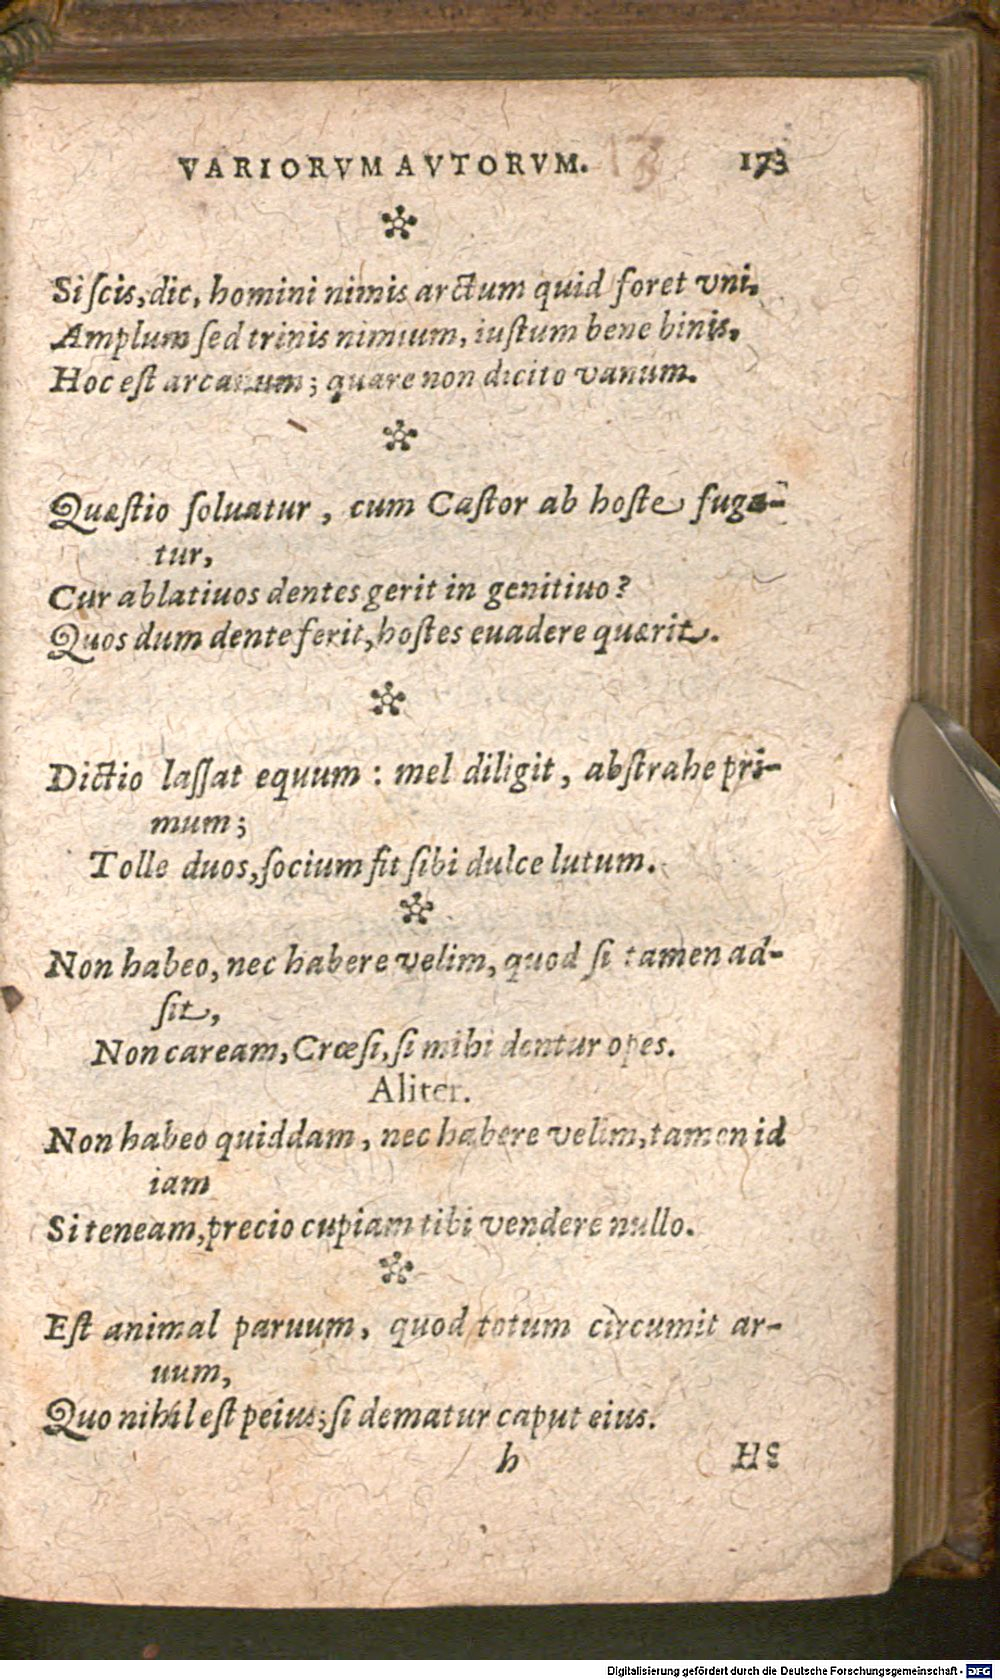 VARIORVM AVTORVM. 173
Si ſcis, dic, homini nimis arctum quid foret vni.
Amplum ſed trinis nimium, iuſtum bene binis.
Hoc eſt arcanum; quare non dicito vanum.
Quæſtio ſoluatur, cum Caſtor ab hoſte fuga-
tur,
Cur ablatiuos dentes gerit in genitiuo?
Quos dum dente ferit, hoſtes euadere quærit.
Dictio laſſat equum: mel diligit, abſtrahe pri-
mum;
Tolle duos, ſocium fit ſibi dulce lutum.
Non habeo, nec habere velim, quod ſi tamen ad-
ſit,
Non caream, Crœſi, ſi mihi dentur opes.
Aliter.
Non habeo quiddam, nec habere velim, tamen id
iam
Si teneam, precio cupiam tibi vendere nullo.
Eſt animal paruum, quod totum circumit ar-
uum,
Quo nihil eſt peius; ſi dematur caput eius.
h
Digitalisierung gefördert durch die Deutsche Forschungsgemeinschaft - DFG